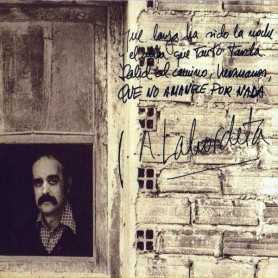 Que larga ha sido la noche
el alba que tanto tarda
Salid al camino, hermanos,
QUE NO AMANECE POR NADA
J. A. Labordeta